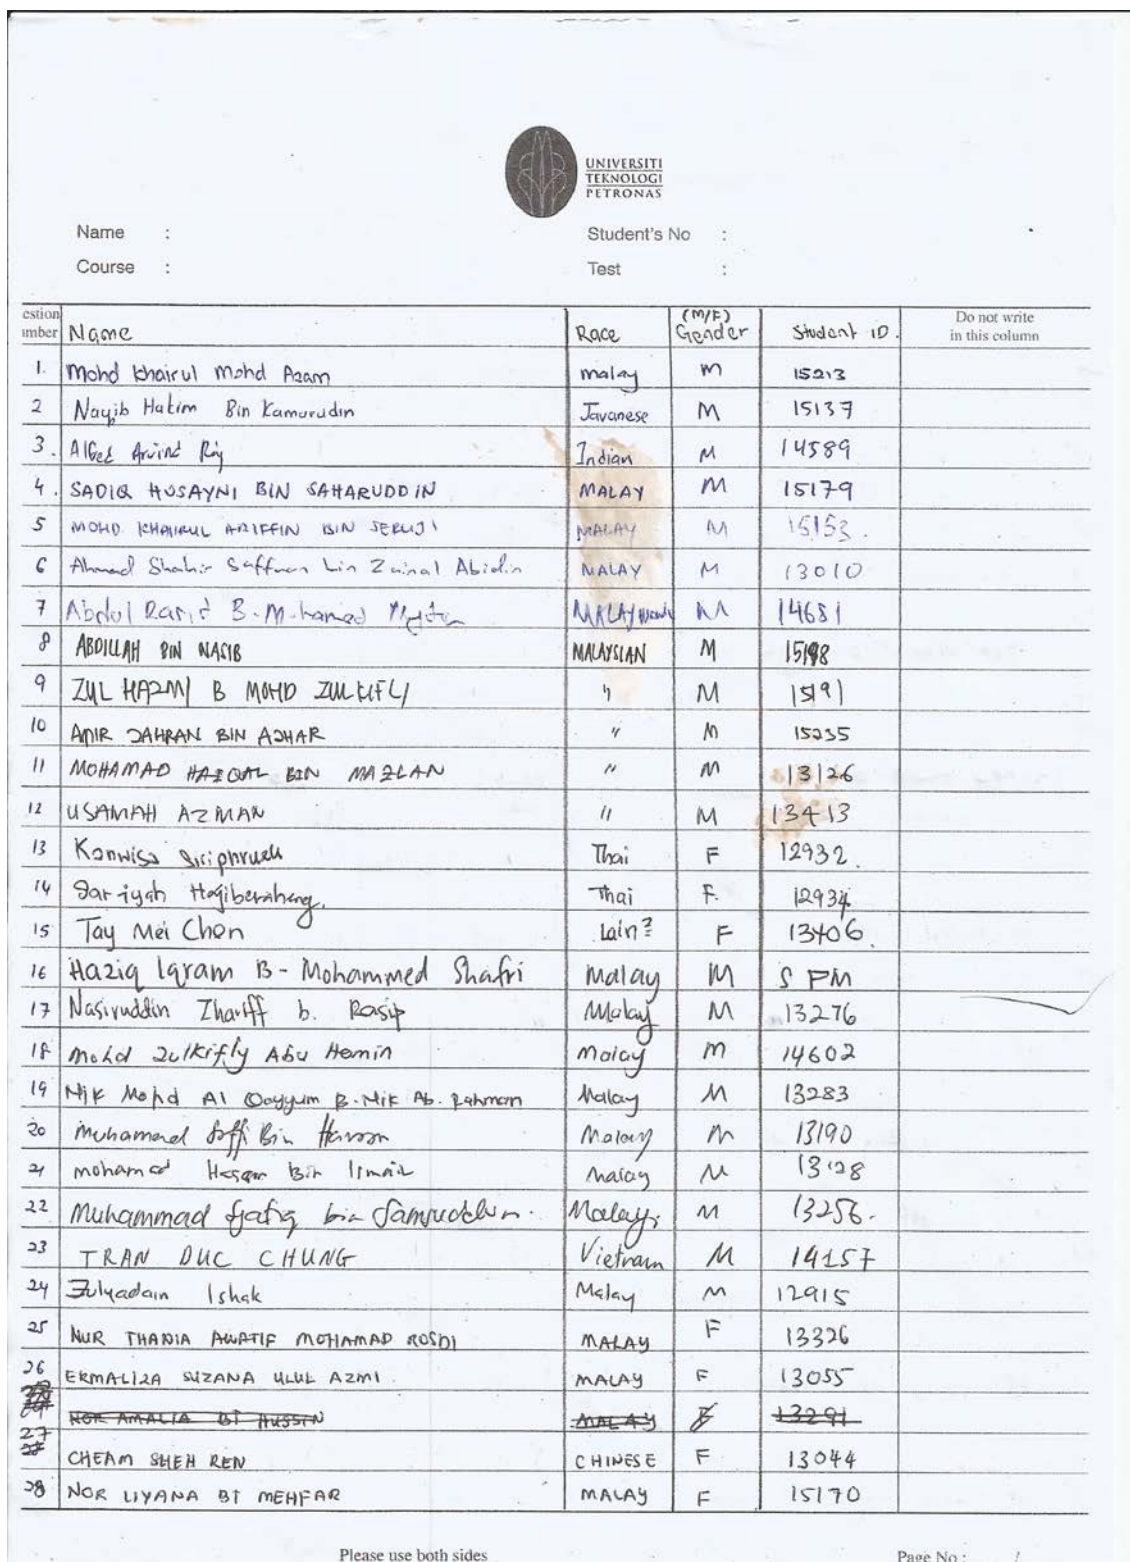 UNIVERSITI
TEKNOLOGI
PETRONAS
Name : Student's No :
Course : Test :
estion umber Name Race (M/F) Gender Student ID. Do not write in this column
1. Mohd Khairul Mohd Azam malay M 15213
2 Naqib Hakim Bin Kamurudin Javanese M 15137
3. Arvind Indian M 14589
4. SADIQ HUSAYNI BIN SAHARUDDIN MALAY M 15179
5 MOHD KHAIRUL ARIFFIN BIN SERUJI MALAY M 15153.
6 Ahmad Shahir Saffuan bin Zainal Abidin MALAY M 13010
7 Abdul Rasid B. Mohamed MALAY M 14681
8 ABDILLAH BIN NASIB MALAYSIAN M
9 ZUL HAZMI B MOHD ZULKIFLI " M 15191
10 AMIR ZAHRAN BIN AZHAR " M 15235
11 MOHAMAD HAIQAL BIN MAZLAN " M 13126
12 USAMAH AZMAN " M 13413
13 Kanwisa Thai F 12932.
14 Thai F. 12934
15 Tay Mei Chen Lain² F 13406.
16 Haziq Iqram B- Mohammed Shafri Malay M S PM
17 Nasiruddin Zhariff b. Rasip Malay M 13276
18 Mohd Zulkifly Abu Hemin Malay M 14602
19 Nik Mohd Al Qayyum B. Nik Ab. Rahman Malay M 13283
20 Muhamad Bin Malay M 13190
21 mohamad Bin Ismail malay M 13128
22 Muhammad bin Malay. M 13256.
23 TRAN DUC CHUNG Vietnam M 14157
24 Zulyadain Ishak Malay M 12915
25 NUR THANIA AWATIF MOHAMAD ROSDI MALAY F 13326
26 ERMALIZA SUZANA ULUL AZMI MALAY F 13055
NOR AMALIA BT HUSSIN MALAY F 13291
27 CHEAM SHEH REN CHINESE F 13044
28 NOR LIYANA BT MEHFAR MALAY F 15170
Please use both sides Page No : /